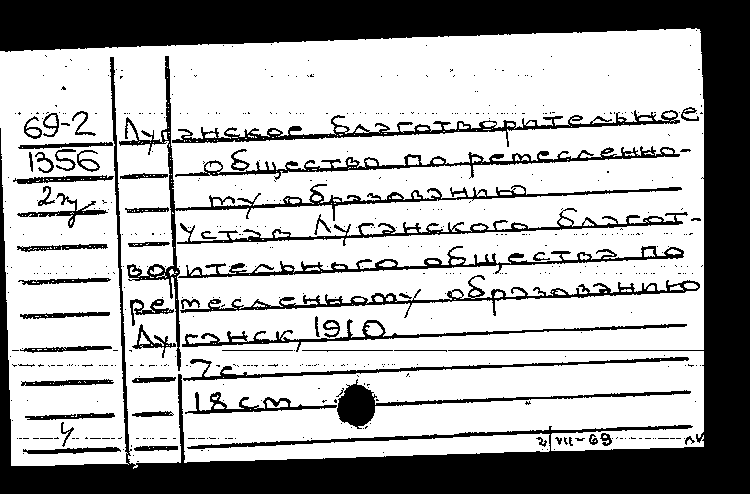 69-2 Луганское благотворительное
1356 общество по ремесленно-
2 му образованию
Устав Луганского благот-
ворительного общества по
ремесленному образованию
Луганск, 1910.
7 с.
18 cm.
2/VII-69